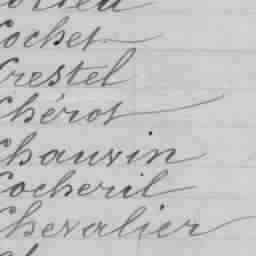 Cochet
Crestel
Chérot
Chauvin
Cocheril
Chevalier